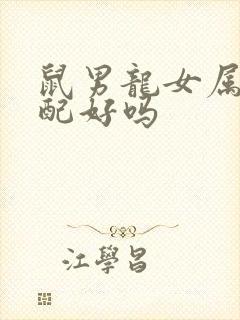 鼠男龍女属
配好吗
江學昌